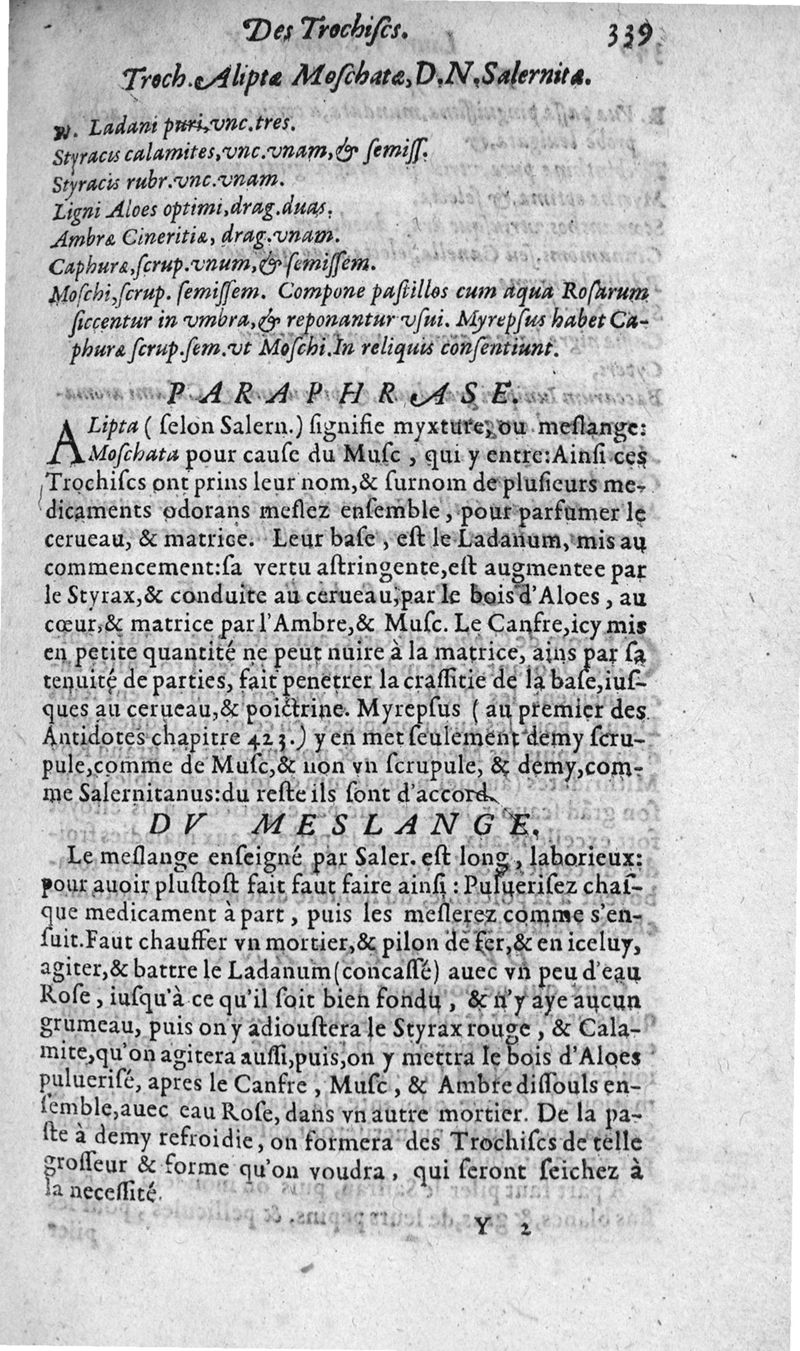 Des Trochiſcs. 339
Troch. Aliptæ Moſchatæ, D. N. Salernitæ.
℞. Ladani puri, vnc. tres.
Styracis calamites, vnc. vnam, & ſemiſſ.
Styracis rubr. vnc. vnam.
Ligni Aloes optimi, drag. duas.
Ambræ Cineritiæ, drag. vnam.
Caphuræ, ſcrup. vnum, & ſemiſſem.
Moſchi, ſcrup. ſemiſſem. Compone paſtillos cum aqua Roſarum
ſiccentur in vmbra, & reponantur vſui. Myrepſus habet Ca-
phuræ ſcrup. ſem. vt Moſchi. In reliquis conſentiunt.
PARAPHRASE.
ALipta ( ſelon Salern.) ſignifie myxture, ou meſlange:
Moſchata pour cauſe du Muſc , qui y entre: Ainſi ces
Trochiſcs ont prins leur nom, & ſurnom de pluſieurs me-
dicaments odorans meſlez enſemble, pour parfumer le
cerueau, & matrice. Leur baſe , eſt le Ladanum, mis au
commencement: ſa vertu aſtringente, eſt augmentee par
le Styrax, & conduite au cerueau, par le bois d'Aloes , au
cœur, & matrice par l'Ambre, & Muſc. Le Canfre, icy mis
en petite quantité ne peut nuire à la matrice, ains par ſa
tenuité de parties, fait penetrer la craſſitie de la baſe, iuſ-
ques au cerueau, & poictrine. Myrepſus ( au premier des
Antidotes chapitre 423.) y en met ſeulement demy ſcru-
pule, comme de Muſc, & non vn ſcrupule, & demy, com-
me Salernitanus: du reſte ils ſont d'accord.
DV MESLANGE.
Le meſlange enſeigné par Saler. eſt long , laborieux:
pour auoir pluſtoſt fait faut faire ainſi : Pulueriſez chaſ-
que medicament à part , puis les meſlerez comme s'en-
ſuit. Faut chauffer vn mortier, & pilon de fer, & en iceluy,
agiter, & battre le Ladanum (concaſſé) auec vn peu d'eau
Roſe , iuſqu'à ce qu'il ſoit bien fondu , & n'y aye aucun
grumeau, puis on y adiouſtera le Styrax rouge , & Cala-
mite, qu'on agitera auſſi, puis, on y mettra le bois d'Aloes
pulueriſé, apres le Canfre , Muſc , & Ambre diſſouls en-
ſemble, auec eau Roſe, dans vn autre mortier. De la pa-
ſte à demy refroidie, on formera des Trochiſcs de telle
groſſeur & forme qu'on voudra , qui ſeront ſeichez à
la neceſſité.
Y 2